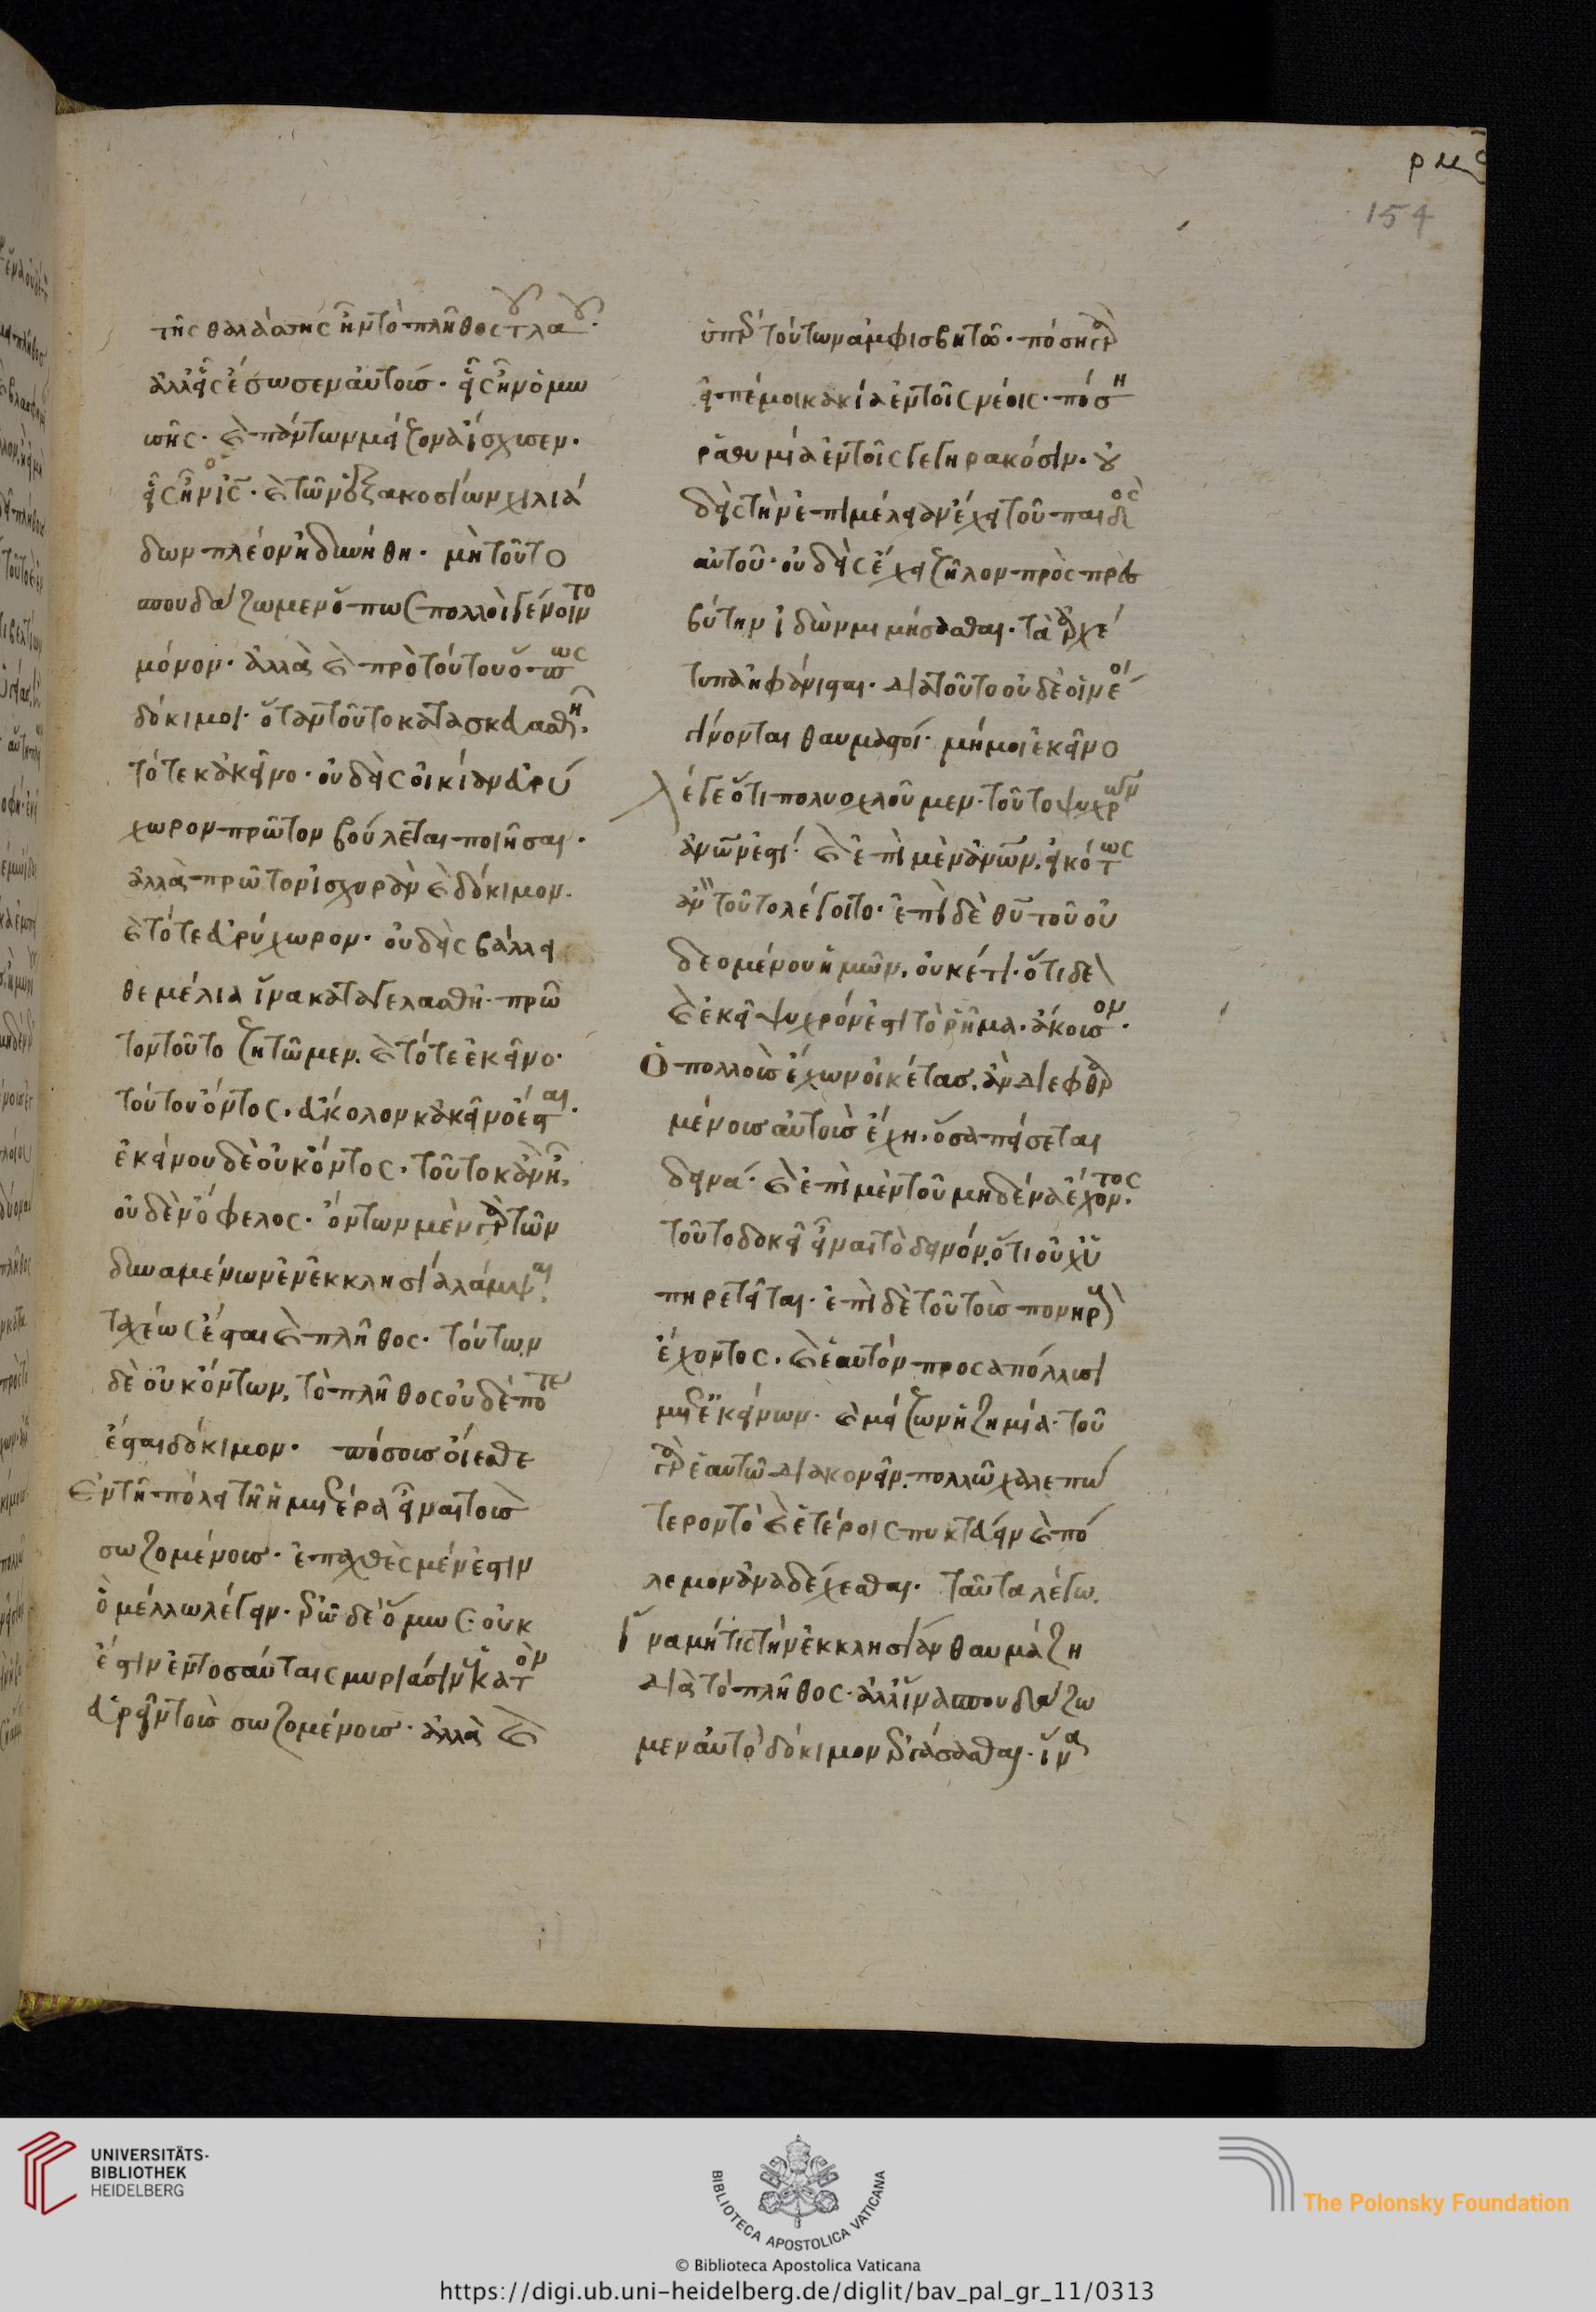 ρμϛ
154
τῆς θαλάσσης ἦν τὸ πλῆθος τοῦ λαοῦ·
ἀλλ' εἷς ἔσωσεν αὐτούς· εἷς ἦν ὁ μω
σῆς· καὶ πάντων μείζονα ἴσχυσεν·
εἷς ἦν ὁ ἰς· καὶ τῶν ἑξακοσίων χιλιά
δων πλέον ἠδυνήθη· μὴ τοῦτο
σπουδάζωμεν ὅπως πολλοὶ γένοιντο
μόνον· ἀλλὰ καὶ πρὸ τούτου ὅπως
δόκιμοι· ὅταν τοῦτο κατασκευασθῇ·
τότε κἀκεῖνο· οὐδεὶς οἰκίαν εὐρύ
χωρον πρῶτον βούλεται ποιῆσαι·
ἀλλὰ πρῶτον ἰσχυρὰν καὶ δόκιμον·
καὶ τότε εὐρύχωρον· οὐδεὶς βάλλει
θεμέλια ἵνα καταγελασθῇ· πρῶ
τον τοῦτο ζητῶμεν· καὶ τότε ἐκεῖνο·
τούτου ὄντος· εὔκολον κἀκεῖνο ἔσται·
ἐκείνου δὲ οὐκ ὄντος· τοῦτο κἂν ᾖ,
οὐδὲν ὄφελος· ὄντων μὲν γὰρ τῶν
δυναμένων ἐν ἐκκλησίᾳ λάμψαι,
ταχέως ἔσται καὶ πλῆθος· τούτων
δὲ οὐκ ὄντων, τὸ πλῆθος οὐδέποτε
ἔσται δόκιμον· πόσους οἴεσθε
ἐν τῇ πόλει τῇ ἡμετέρᾳ εἶναι τοὺς
σωζομένους· ἐπαχθὲς μέν ἐστιν
ὃ μέλλω λέγειν· ἐρῶ δὲ ὅμως· οὐκ
ἔστιν ἐν τοσαύταις μυριάσιν ἑκατὸν
εὑρεῖν τοὺς σωζομένους· ἀλλὰ καὶ
ὑπὲρ τούτων ἀμφισβητῶ· πόση γὰρ
εἰπέ μοι κακία ἐν τοῖς νέοις· πόση
ῥαθυμία ἐν τοῖς γεγηρακόσιν· οὐ
δεὶς τὴν ἐπιμέλειαν ἔχει τοῦ παιδὸς
αὐτοῦ· οὐδεὶς ἔχει ζῆλον πρὸς πρεσ
βύτην ἰδὼν μιμήσασθαι· τὰ ἀρχέ
τυπα ἠφάνισται· διὰ τοῦτο οὐδὲ οἱ νέοι
γίνονται θαυμαστοί· μή μοι ἐκεῖνο
λέγε ὅτι πολυοχλοῦμεν· τοῦτο ψυχρῶν
ἀνῶν ἐστί· καὶ ἐπὶ μὲν ἀνῶν, εἰκότως
ἂν τοῦτο λέγοιτο· ἐπὶ δὲ θῦ τοῦ οὐ
δεομένου ἡμῶν, οὐκέτι· ὅτι δὲ
καὶ ἐκεῖ ψυχρόν ἐστι τὸ ῥῆμα· ἄκουσον·
Ὁ πολλοὺς ἔχων οἰκέτας, ἂν διεφθαρ
μένους αὐτοὺς ἔχη, ὅσα πείσεται
δεινά· καὶ ἐπὶ μὲν τοῦ μηδένα ἔχοντος·
τοῦτο δοκεῖ εἶναι τὸ δεινόν, ὅτι οὐχ ὑ
πηρετεῖται· ἐπὶ δὲ τοῦ τοὺς πονηροὺς
ἔχοντος· καὶ ἑαυτὸν προσαπόλλυσι
μετ' ἐκείνων· καὶ μείζων ἡ ζημία· τοῦ
γὰρ ἑαυτῷ διακονεῖν, πολλῷ χαλεπώ
τερον τὸ καὶ ἑτέροις πυκτεύειν καὶ πό
λεμον ἀναδέχεσθαι· ταῦτα λέγω,
ἵνα μή τις τὴν ἐκκλησίαν θαυμάζη
διὰ τὸ πλῆθος· ἀλλ' ἵνα σπουδάζω
μεν αὐτὸ δόκιμον ἐργάσασθαι· ἵνα
UNIVERSITÄTS-
BIBLIOTHEK
HEIDELBERG
BIBLIOTECA APOSTOLICA VATICANA
© Biblioteca Apostolica Vaticana
The Polonsky Foundation
https://digi.ub.uni-heidelberg.de/diglit/bav_pal_gr_11/0313